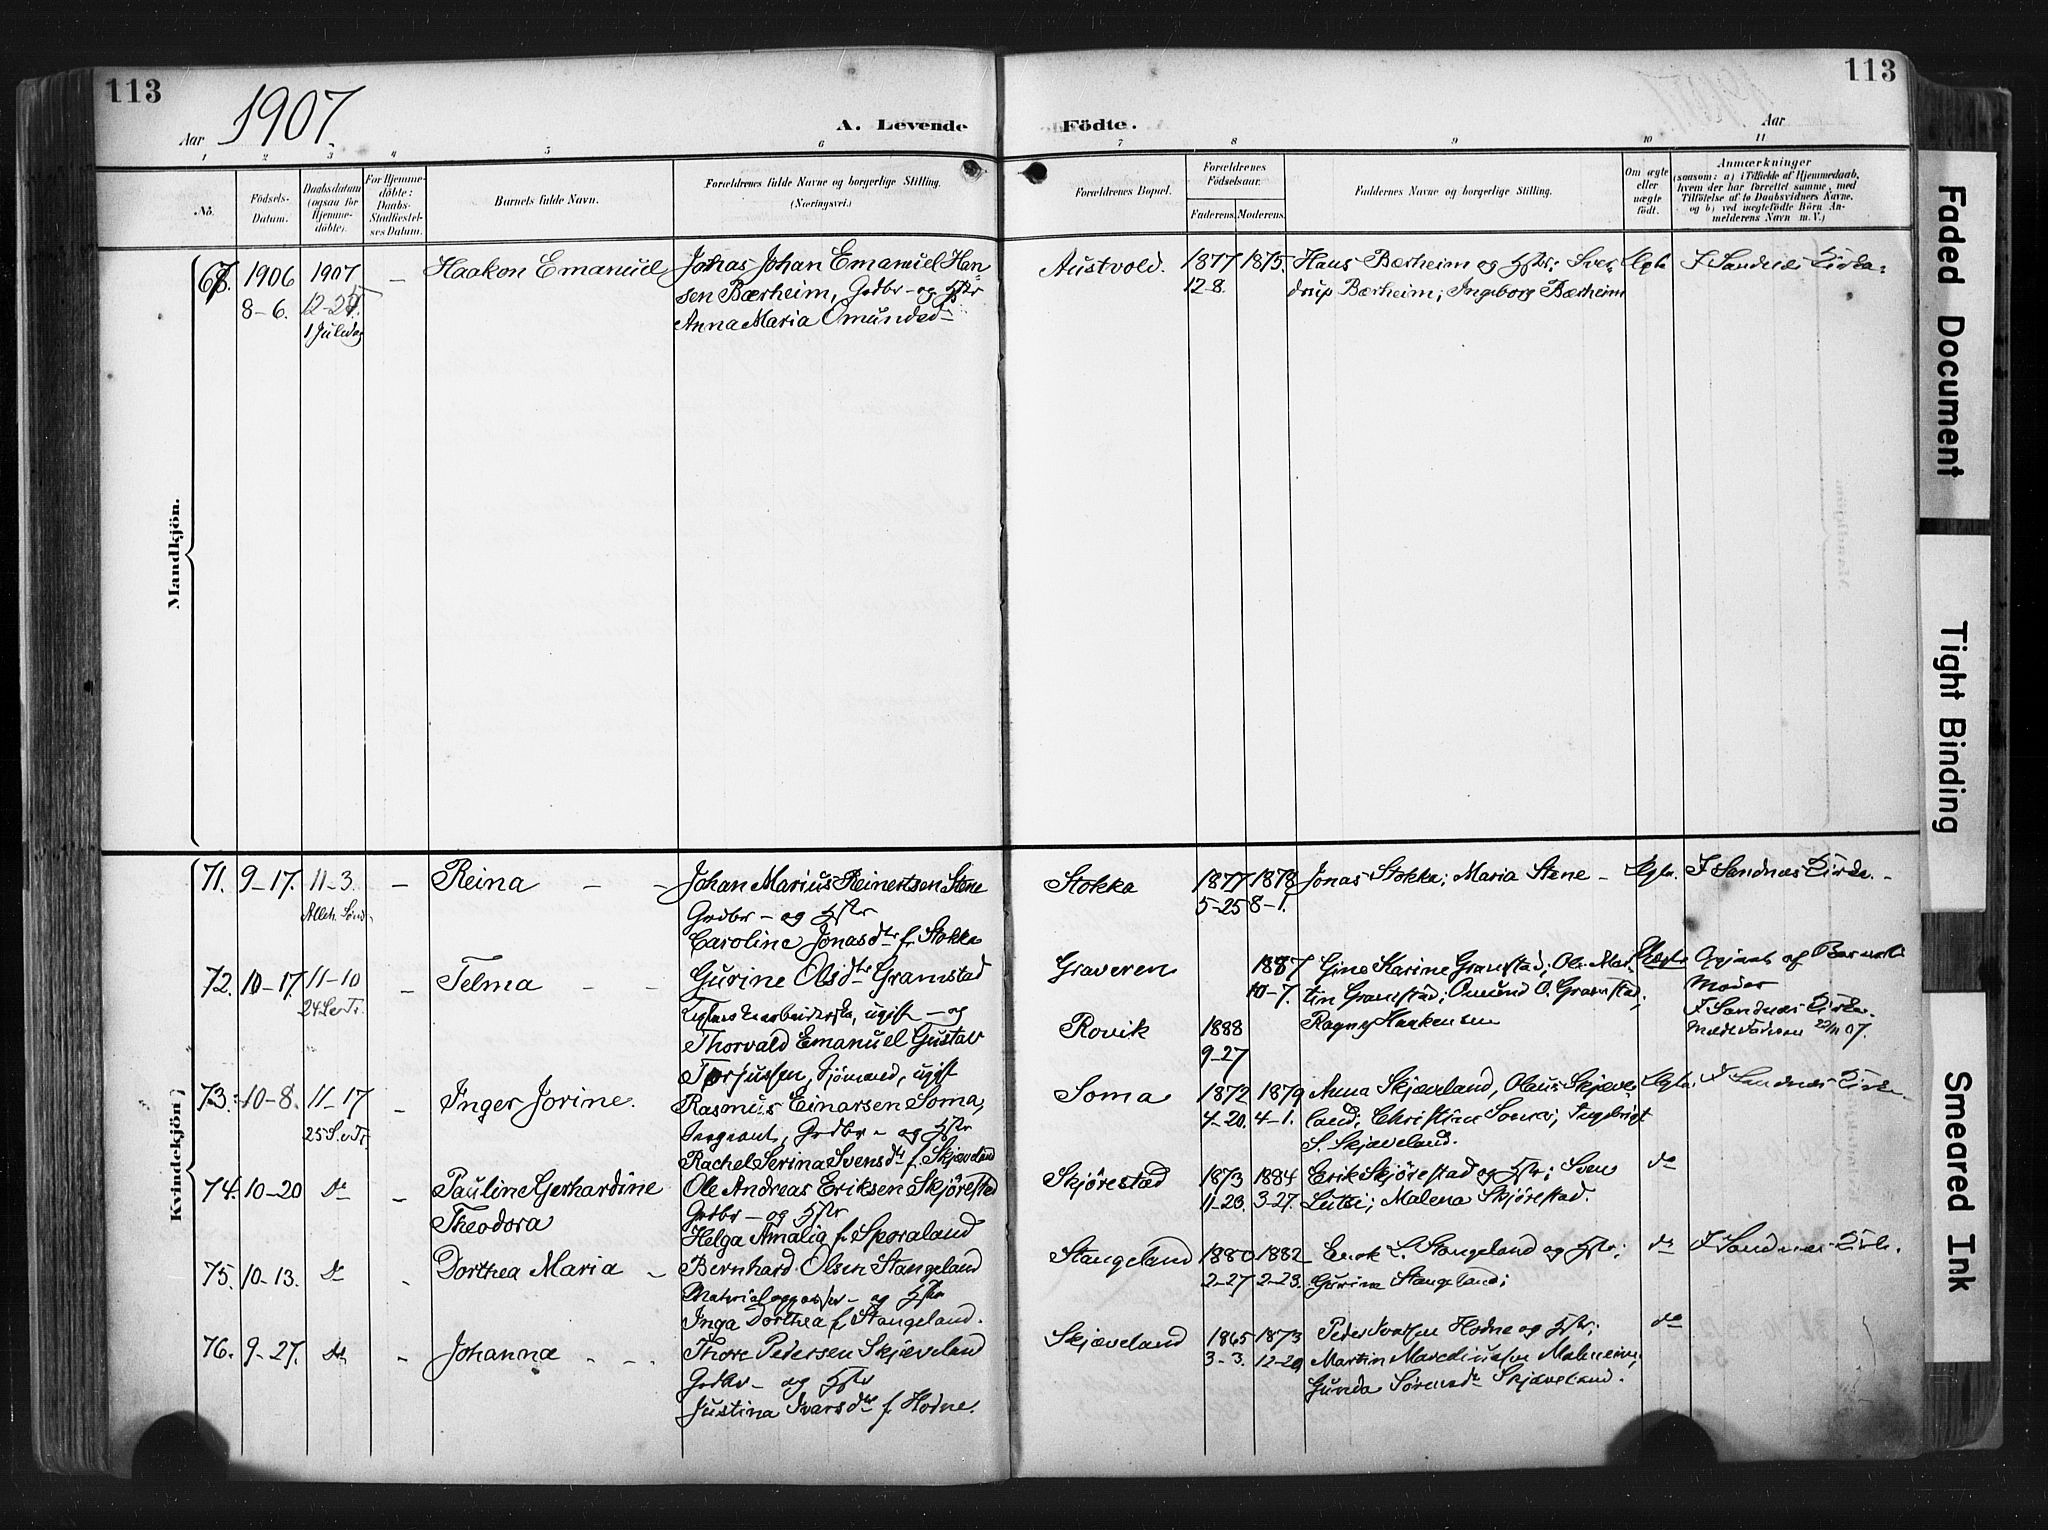 113
113
Aar 1907.
A. Levende
Födte.
Aar
1 2 3 4 5 6 7 8 9 10 11
No.
Födsels-
Datum.
Daabsdatum
(ogsaa for
Hjemme-
döbte).
For Hjemme-
döbte:
Daabs-
Stadfæstel-
ses Datum.
Barnets fulde Navn.
Forældrenes fulde Navne og borgerlige Stilling.
(Næringsvei.)
Forældrenes Bopæl.
Forældrenes
Födselsaar.
Faderens. Moderens.
Faddernes Navne og borgerlige Stilling.
Om ægte
eller
uægte
födt.
Anmærkninger
(saasom: a) i Tilfælde af Hjemmedaab,
hvem der har forrettet samme, med
Tilföielse af to Daabsvidners Navne,
og b) ved uægtefödte Börn An-
melderens Navn m. V.)
Mandkjön.
1906
8-6.
1907
1 Juledag
Haakon Emanuel
Jonas Johan Emanuel Han-
sen Bærheim, Gdbr - og Hstr
Anna Maria Omundsd
Austvold.
1877
12-8.
1875.
Hans Bærheim og Hstr; Sven
drup Bærheim; Ingeborg Bærheim
Ægte
I Sandnes Kirke.
Kvindekjön
71. 9-17. 11-3.
Reina
Johan Marius Reinertsen Stene
Grdbr - og Hstr
Caroline Jonasdtr f. Stokka
Stokka
1877
5-25
1878
8-1.
Jonas Stokka; Maria Stene -
Ægte.
I Sandnes Kirke.
72. 10-17. 11-10
24 S e Tr.
Telma
Gurine Olsdtr Gramstad
ugift - og
Thorvald Emanuel Gustav
Torjussen, Sjömand, ugift
Graveren
Rovik
1888
9-27
1887
10-7.
Gine Karine Gramstad; Ole Mar-
tin Gramstad; Omund O. Gramstad,
Ragna Haakensen
Uægte
Opgivet af Barnets
Moder
I Sandnes Kirke.
73. 10-8. 11-17
25 S. e Tr.
Inger Jorine.
Rasmus Einarsen Soma,
Sergeant, Grdbr - og Hstr
Rachel Serina Svensdtr f. Skjæveland
Soma
1872
4-20.
1879
4-1.
Anna Skjæveland, Olaus Skjæve-
land; Christine Soma; Ingebrigt
S. Skjæveland.
Ægte.
I Sandnes Kirke
74. 10-20 do
Pauline Gerhardine
Theodora
Ole Andreas Eriksen Skjörestad
Grdbr - og Hstr
Helga Amalia f. Sporaland
Skjörestad
1873
11-23.
1884
3-27.
Erik Skjörestad og Hstr; Sven
Lutsi; Malena Skjörestad.
do
75. 10-13. do
Dorthea Maria
Bernhard Olsen Stangeland
og Hstr
Inga Dorthea f. Stangeland.
Stangeland
1880
2-27
1882
2-23.
Enok L. Stangeland og Hstr;
Gurina Stangeland;
do
I Sandnes Kirke.
76. 9-27. do
Johanna
Thore Pedersen Skjæveland
Grdbr - og Hstr
Justina Ivarsdtr f. Hodne.
Skjæveland
1865
3-3.
1873
12-20
Peder Ivarsen Hodne og Hstr;
Martin Mardinusen Malmeim;
Gunda Sörensdtr Skjæveland.
do
Faded Document
Tight Binding
Smeared Ink